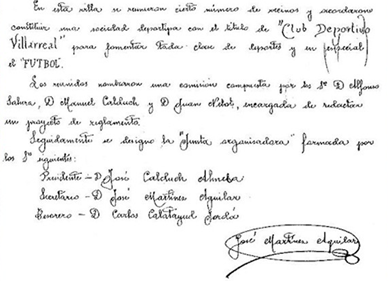 En esta villa se reunieron cierto número de vecinos y acordaron
constituir una sociedad deportiva con el título de "Club Deportivo
Villarreal" para fomentar toda clase de deportes y en especial
el "FUTBOL".
Los reunidos nombraron una comisión compuesta por los Sº D Alfonso
D Manuel Calduch y D Juan encargada de redactar
un proyecto de reglamento.
Seguidamente se designo la "Junta organizadora" formada por
los Sº siguientes:
Presidente - D José Calduch Almela
Secretario - D José Martínez Aguilar
Tesorero - D Carlos Calatayud Jordá
José Martínez Aguilar